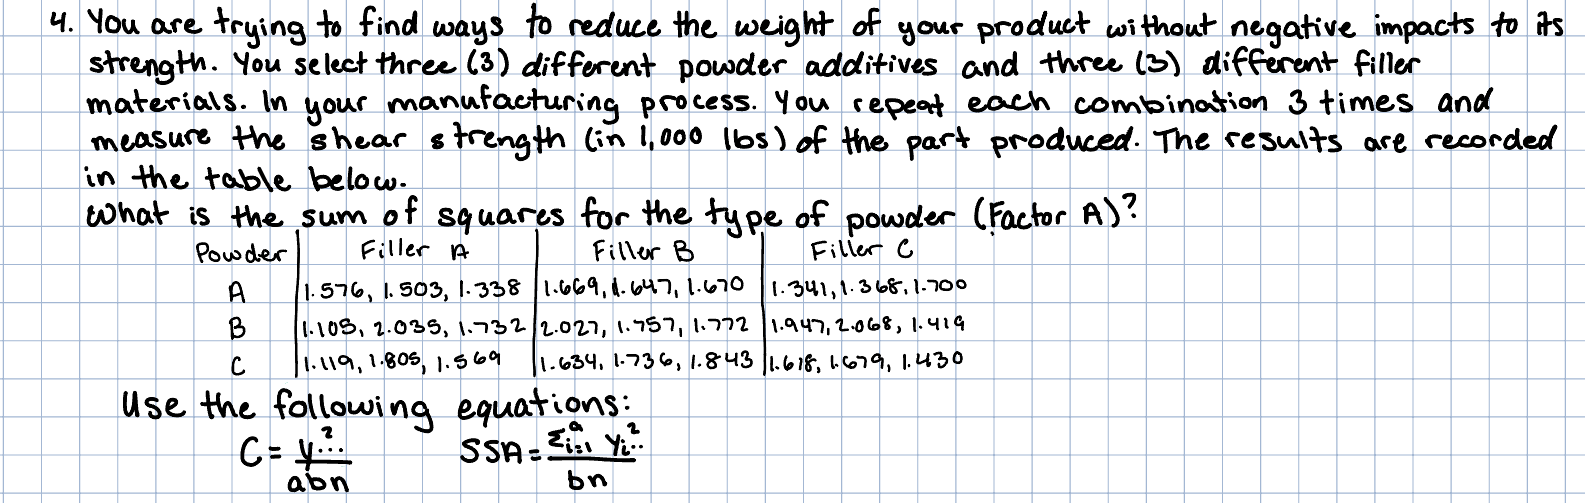 4. You are trying to find ways to reduce the weight of your product without negative impacts to its
strength. You select three (3) different powder additives and three (3) different filler
materials. In your manufacturing process. You repeat each combination 3 times and
measure the shear strength (in 1,000 lbs) of the part produced. The results are recorded
in the table below.
What is the sum of squares for the type of powder (Factor A)?
Powder Filler A Filler B Filler C
A 1.576, 1.503, 1.338 1.669, 1.647, 1.670 1.341, 1.368, 1.700
B 1.105, 2.035, 1.732 2.027, 1.757, 1.772 1.947, 2.068, 1.419
C 1.119, 1.805, 1.569 1.634, 1.736, 1.843 1.618, 1.679, 1.430
Use the following equations:
C = y²... / abn SSA = Σᵃi=1 yi².. / bn